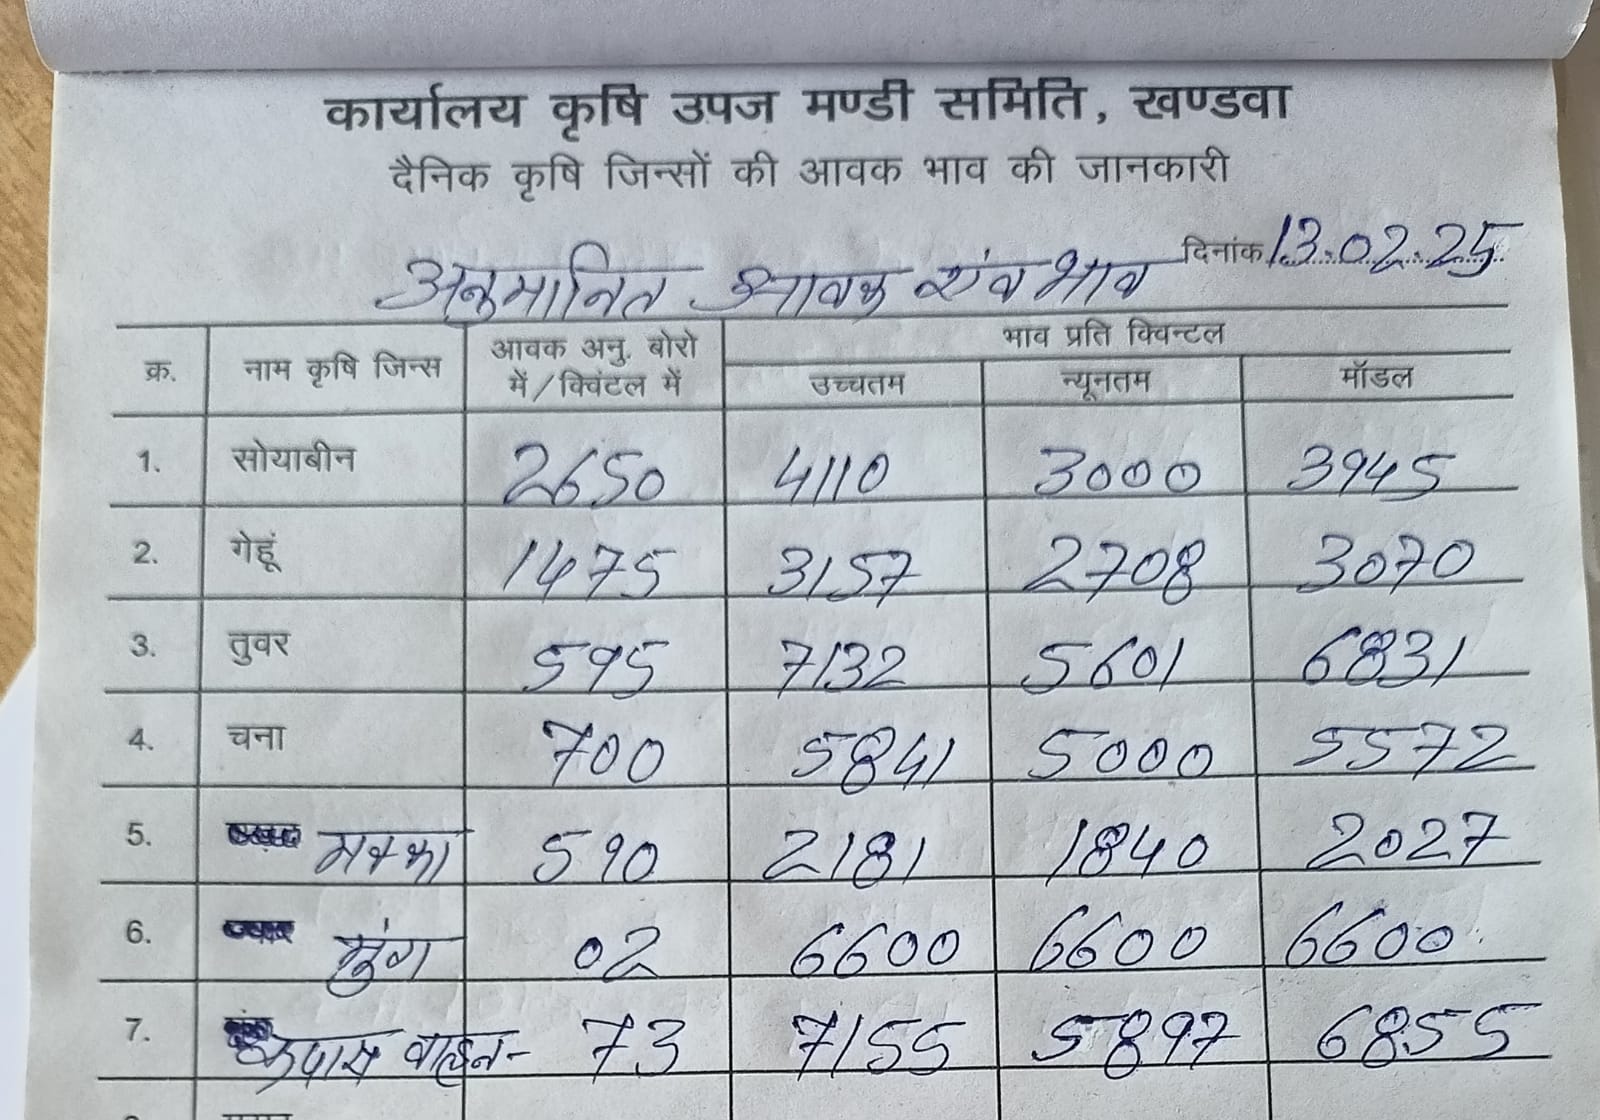 कार्यालय कृषि उपज मण्डी समिति, खण्डवा
दैनिक कृषि जिन्सों की आवक भाव की जानकारी
दिनांक 13.02.25
अनुमानित आवक एंव भाव
क्र. नाम कृषि जिन्स आवक अनु. बोरो में/क्विंटल में भाव प्रति क्विन्टल
उच्चतम न्यूनतम मॉडल
1. सोयाबीन 2650 4110 3000 3945
2. गेहूं 1475 3157 2708 3070
3. तुवर 595 7132 5601 6831
4. चना 700 5841 5000 5572
5. मक्का 590 2181 1840 2027
6. मुंग 02 6600 6600 6600
7. कपास वाहन- 73 7155 5897 6855